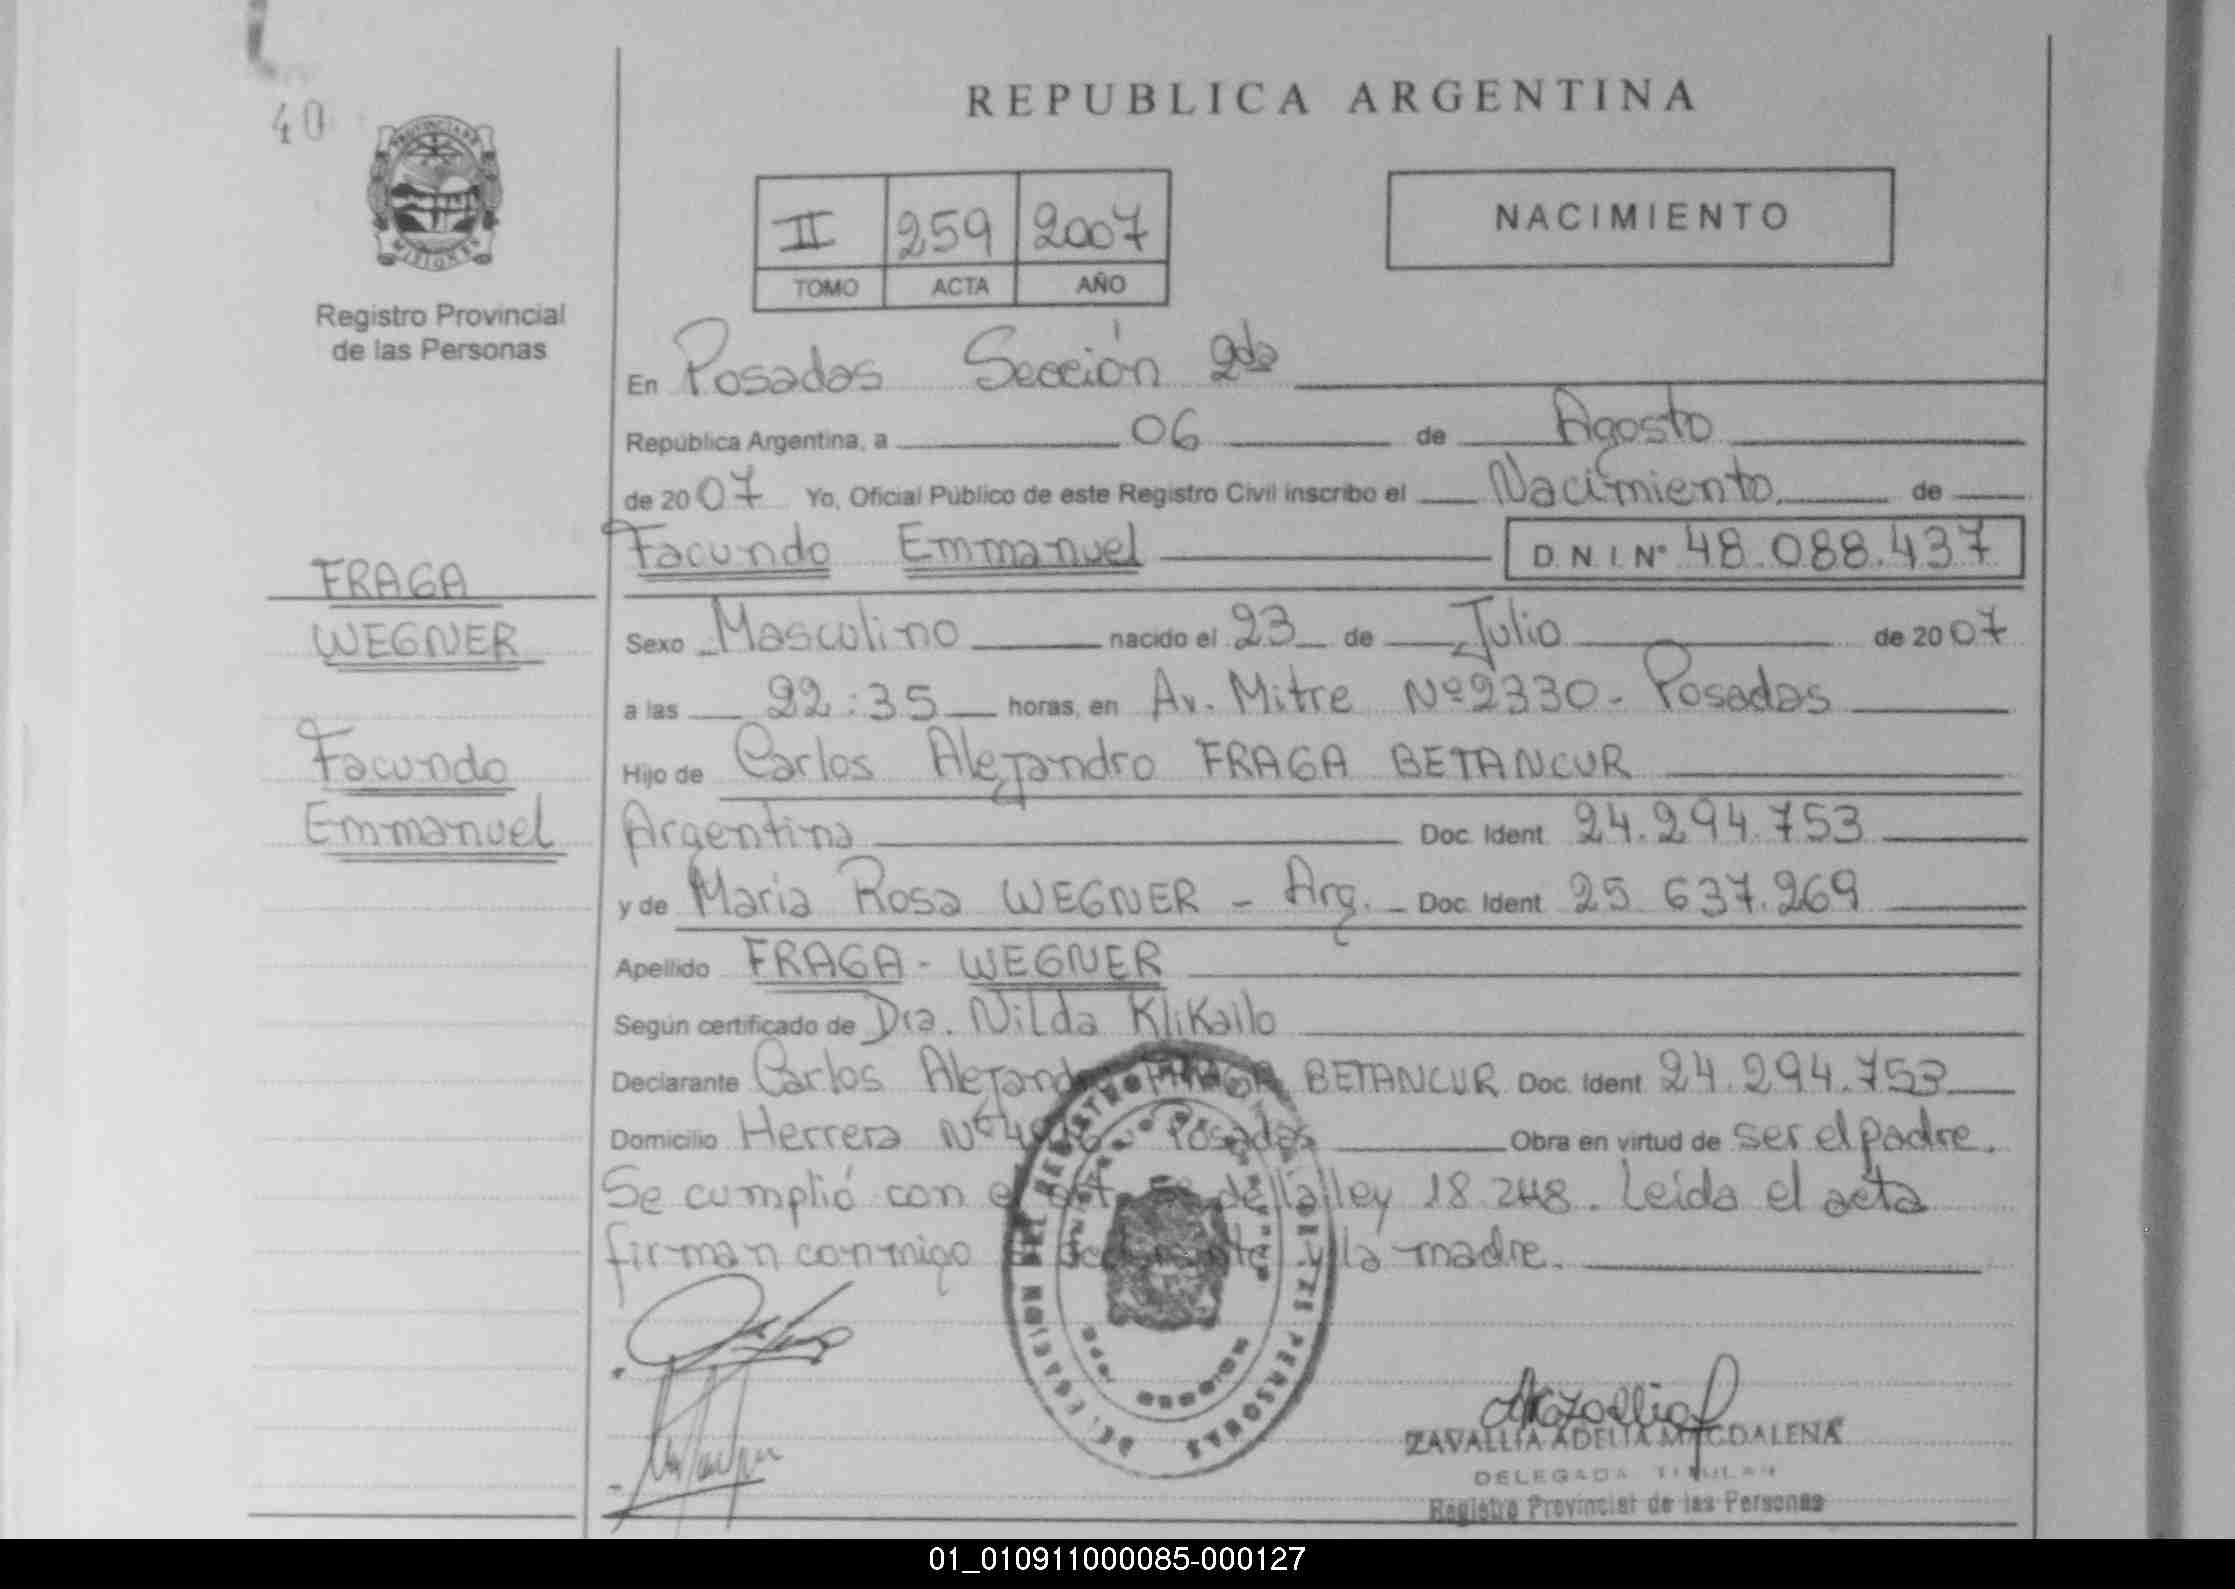 40
REPUBLICA ARGENTINA
II 259 2007
TOMO ACTA AÑO
NACIMIENTO
PROVINCIA DE MISIONES
Registro Provincial
de las Personas
En Posadas Sección 2da
República Argentina, a 06 de Agosto
de 2007 Yo, Oficial Público de este Registro Civil inscribo el Nacimiento de
Facundo Emmanuel D.N.I. Nº 48.088.437
FRAGA
WEGNER
Facundo
Emmanuel
Sexo Masculino nacido el 23 de Julio de 2007
a las 22:35 horas, en Av. Mitre Nº 2330 - Posadas
Hijo de Carlos Alejandro FRAGA BETANCUR
Argentina Doc. Ident 24.294.753
y de Maria Rosa WEGNER - Arg. - Doc. Ident 25 637.269
Apellido FRAGA - WEGNER
Según certificado de Dra. Nilda Klikailo
Declarante Carlos Alejandro FRAGA BETANCUR Doc. Ident 24.294.753
Domicilio Herrera Nº Posadas Obra en virtud de ser el padre.
Se cumplió con el art. de la ley 18.248. Leída el acta
firman conmigo declarante y la madre.
DEL REGISTRO DE LAS PERSONAS
ZAVALLIA ADELIA MAGDALENA
DELEGADA TITULAR
Registro Provincial de las Personas
01_010911000085-000127